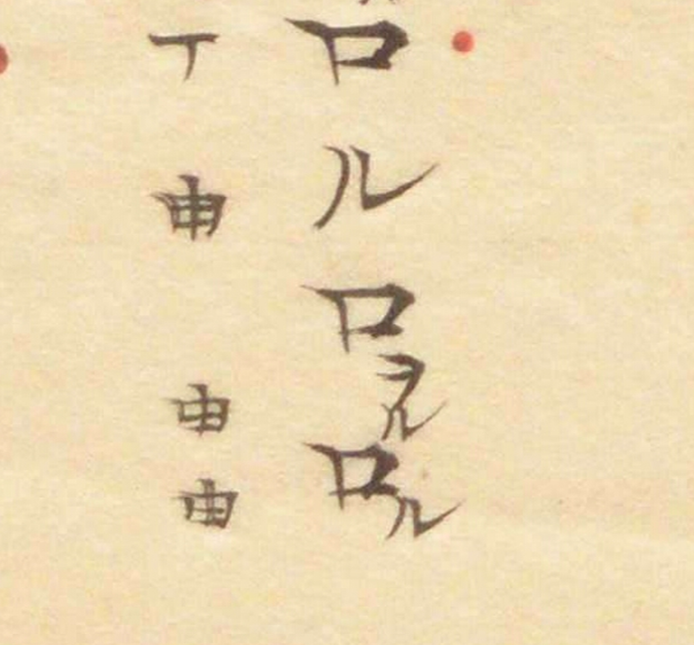 ロルロヲルロル
丅申由由